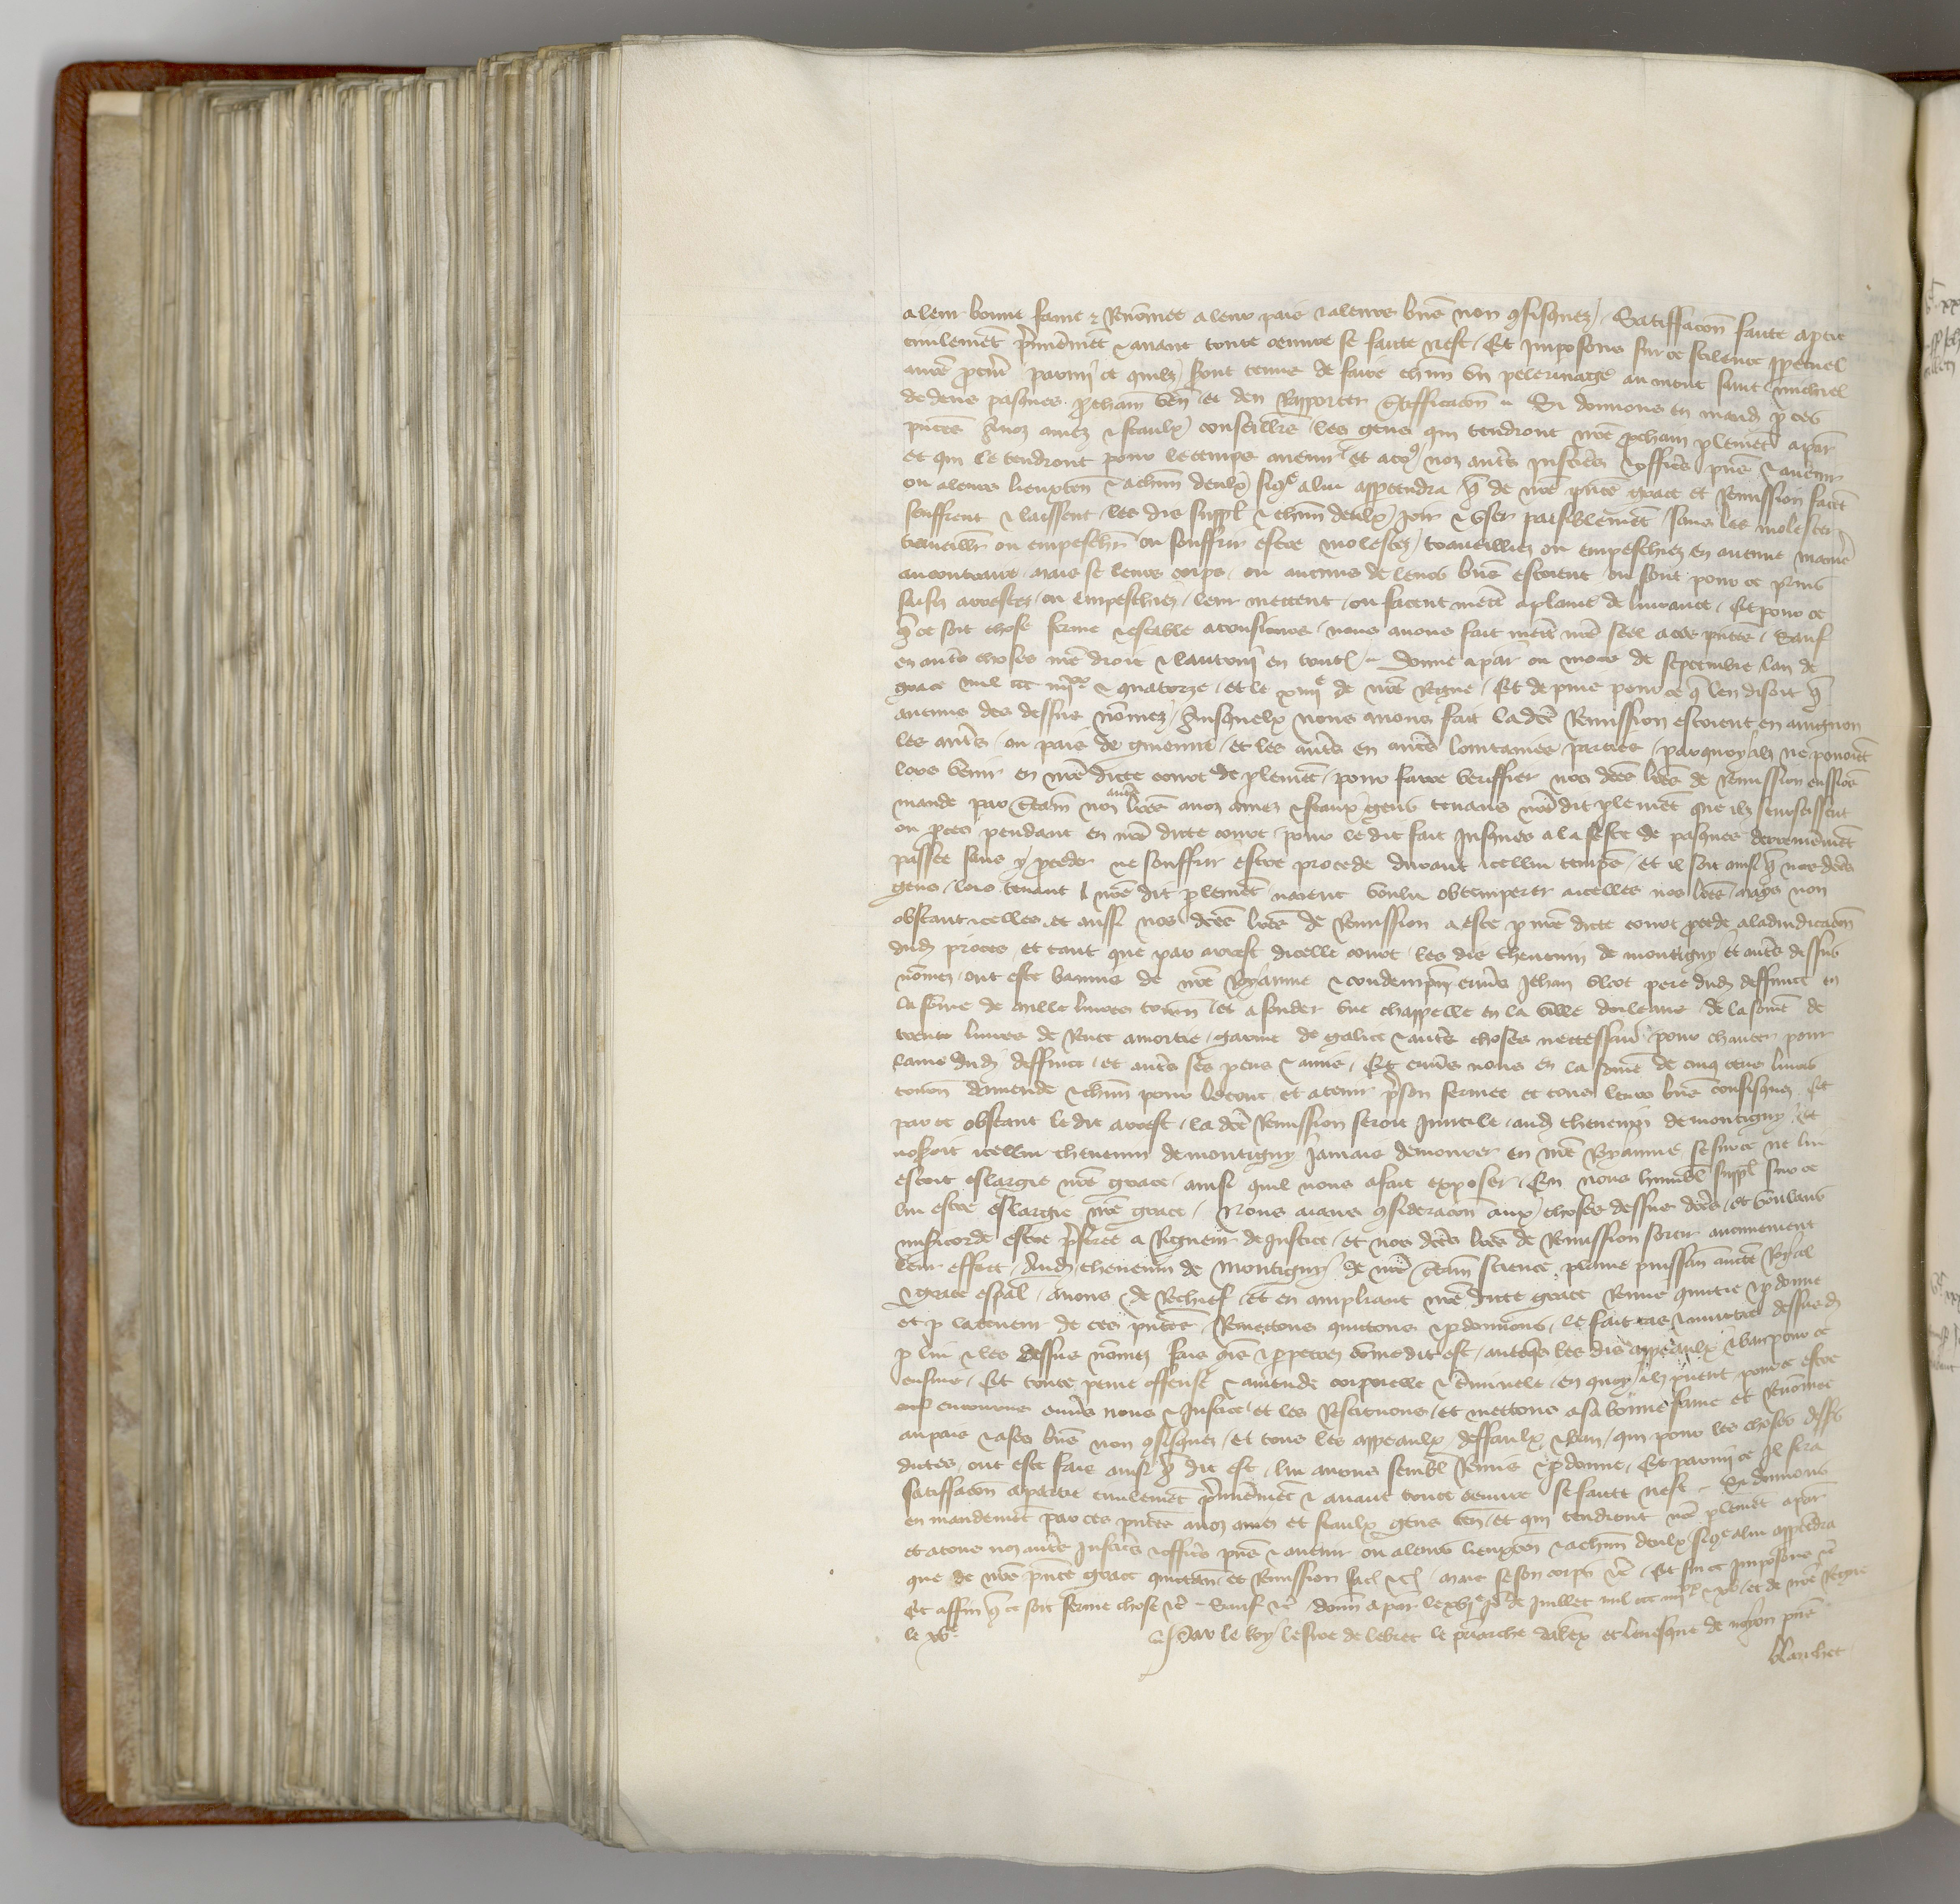 a leur bonne fame & Renomee a leur pais & a leurs biēs non 9fisquez / Satiffacōn faite a ptie
ciuilemēt p̄mieremēt & auant toute oeuure se faicte nest / Et Imposons sur ce scilence ppetuel
a nrē procur̄ parmi ce quilz seront tenus de faire chūn vn pelerinage au mont saint michiel
dedens pasques prochain ven̄ et den Rapporter c̄tifficacōn .. Si donnons en mand̄ p ces
pn̄tes a noz amez & feaulx conseillers les gens qui tendront nrē prochain plemēt a par̄
et qui le tendront pour le temps auenir et a to9 noz autr̄s Justiciers & officiers pn̄s & auenir
ou a leurs lieuxten̄ & a chūn deulx sicōe a lui appartendra q̄ de nrē pn̄te grace et Remission facēt
seuffrent & laissent les dis suppl̄ & chūn deulx joir & vser paisiblemēt sans les molester
trauaillier ou empeschier ou souffrir estre molestez / trauaillez ou empeschiez en aucune maniere
au contraire mais se leurs corps ou aucuns de leurs biēs estoient ou sont pour ce prins
saisiz arrestez ou empeschiez leur mettent ou facent mettre a plaine deliurance / Et pour ce
q̄ ce soit chose ferme & estable a tousiours nous auons fait mettre nrē seel a ces pn̄tes / Sauf
en autres choses nrē droit & lautruy en toutes .. Donne a par̄ ou mois de septembre lan de
grace mil ccc iiijxx & quatorze / et le xiiije de nrē Regne / Et depuis pour ce q̄ len disoit q̄
aucuns des dessus nōmez / ausquelx nous auons fait la dcē Remission estoient en auignon
les autr̄s ou pais de guienne / et les autr̄s en autr̄s lointaines parties / par quoy ilz ne pouoiēt
lors venir en nrē dicte court de plemēt / pour faire veriffier nos dcēs lrēs de Remission eussiōs
mande par c̄tain̄ noz autr̄s lrēs a noz amez & feaulx gens tenans nrē dit plemēt que ilz tenissent
ou proces pendant en nrē dicte court pour le dit fait Jusques a la feste de pasques derrenieremēt
passee sans y proceder ne souffrir estre procede durant icellui temps / et il soit ainsi q̄ nos dcēs
gens lors tenant nrē dit plemēt naient voulu obtemperer a icelles nos lrēs / mais non
obstant icelles et aussi nos dcēs lrēs de Remission a este p nrē dicte court procede a ladiudicacōn
dud̄ proces / et tant que par arrest dicelle court les dis theuenin de montigny et autr̄s dessus
nōmez ont este bannis de nrē Royaume & condempnez enuers Jehan blot pere dud̄ deffunct en
la sōme de mille liures tourn̄ et a fonder vne chappelle en la ville dorleans de la sōme de
trente liures de Rente amortie garnie de galice & autr̄s choses neccessair̄ pour chanter pour
lame dud̄ deffunct / et autr̄s ses pens & amis / Et enuers nous en la sōme de cinq cens liures
tourn̄ damende & chūn pour le tout et a tenir pson fermee et tous leurs biēs confisquez / Et
par ce obstant le dit arrest la dcē Remission seroit Inutile aud̄ theuenin de montigny / Et
noseroit icellui theuenin de montigny Jamais demourer en nrē Royaume / se sur ce ne lui
estoit eslargie nrē grace / ainsi quil nous a fait exposer / En nous humblem̄ suppl̄ sur ce
lui estre eslargie nrē grace / Nous aians 9sideracōn aux choses dessus dcēs et voulans
misericorde estre p̄feree a Rigueur de Justice / et nos dcēs lrēs de Remission sortir aucunement
leur effect / Aud̄ theuenin de Montigny de nrē c̄tain̄ science plaine puissan̄ auctē Royal
& grace espāl auons de Rechief et en ampliant nrē dicte grace Remis quictie & pdonne
et p la teneur de ces pn̄tes Remettons quictons & pdonnons le fait cas & murtre dessusd̄
p lui & les dessus nōmez fais & ppetrez cōme dit est / auecques les dis appeaulx & ban pour ce
ensuiz / Et toute peine offense & amende corporelle & c̄minele / en quoy ilz puent pour ce estre
encourus enuers nous & Justice / et les Restituons / et mettons a sa bonne fame et Renōmee
au pais & a ses biēs non 9fisquez / Et tous les appeaulx deffaulx & ban / qui pour les choses dessus
dictes ont este fais ainsi q̄ dit est lui auons sembl̄ Remis & pdonne / Et parmi ce Il fera
satiffacōn a ptie ciuilemēt p̄mieremēt & auant toute oeuure se faicte nest .. Si donnons
en mandemēt par ces pn̄tes a noz amez et feaulx gens ten̄ et qui tendront nrē plemēt a par̄
et a tous noz autr̄s Justiciers & officiers pn̄s & auenir ou a leurs lieuxten̄ & a chūn deulx sicōe a lui appartendra
que de nrē pn̄te grace quictan̄ et Remission fac̄ &c̄ / mais se son corps &c̄ / Et sur ce Imposons &c̄
Et affin q̄ ce soit ferme chose &c̄ Sauf &c̄ / donn̄ a par̄ le xvje Jor de Juillet mil ccc iiijxx & xv / et de nrē Regne
le xve
Par le Roy le sire de lebret le patriarche dalex̄ et leuesque de noyon pn̄s
blanchet